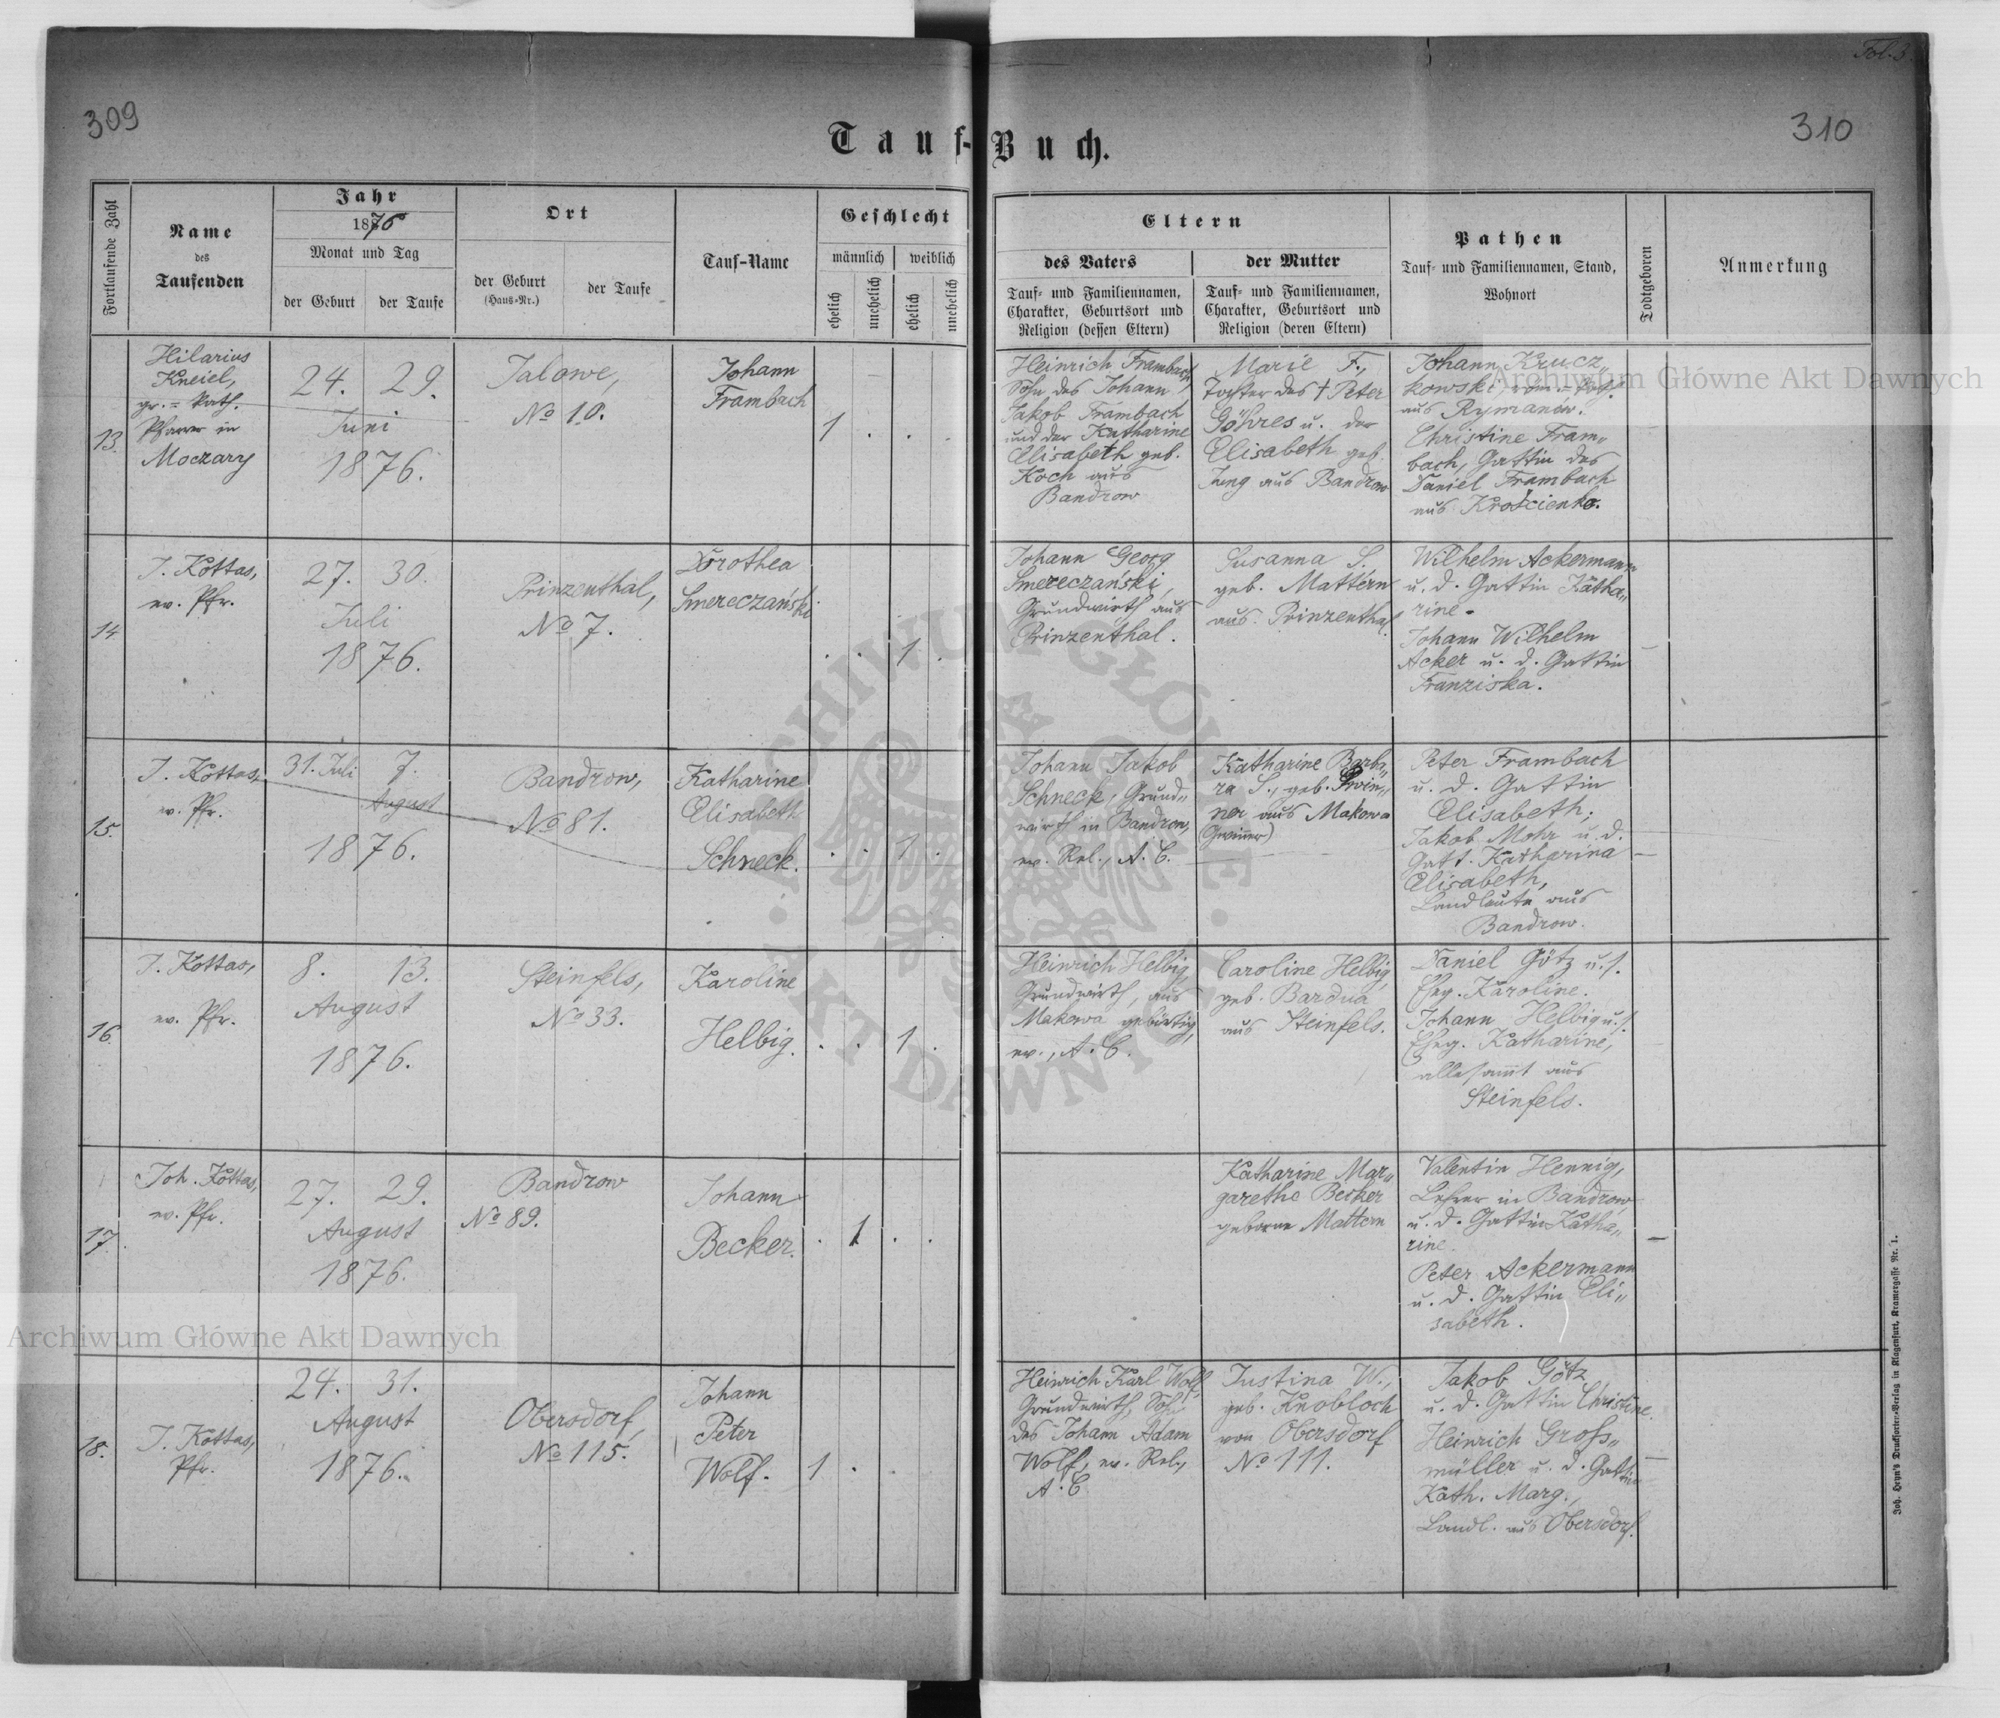 309
Tauf-Buch.
310
Fol. 3.
Fortlaufende Zahl
Name
des
Taufenden
Jahr
1876
Monat und Tag
der Geburt
der Taufe
Ort
der Geburt
(Haus-Nr.)
der Taufe
Tauf-Name
Geschlecht
männlich
weiblich
ehelich
unehelich
ehelich
unehelich
Eltern
des Vaters
Tauf- und Familiennamen,
Charakter, Geburtsort und
Religion (dessen Eltern)
der Mutter
Tauf- und Familiennamen,
Charakter, Geburtsort und
Religion (deren Eltern)
Pathen
Tauf- und Familiennamen, Stand,
Wohnort
Todtgeboren
Anmerkung
13.
Hilarius
Kneiel,
gr.=kath.
Pfarrer in
Moczary
24. 29.
Juni
1876.
Jalowe,
No 10.
Johann
Frambach
1 . . .
Heinrich Frambach,
Sohn des Johann
Jakob Frambach
und der Katharine
Elisabeth geb.
Koch aus
Bandrow
Marie F.,
Tochter des † Peter
Göhres u. der
Elisabeth geb.
Jung aus Bandrow
Johann Krucz„
kowski, rom.=kath.
aus Rymanów.
Christine Fram„
bach, Gattin des
Daniel Frambach
aus Krościenko.
14
J. Kottas,
ev. Pfr.
27. 30.
Juli
1876.
Prinzenthal,
No 7.
Dorothea
Smereczański
. . 1 .
Johann Georg
Smereczański,
Grundwirth aus
Prinzenthal.
Susanna S.
geb. Mattern
aus Prinzenthal.
Wilhelm Ackermann
u. d. Gattin Katha„
rine.
Johann Wilhelm
Acker u. d. Gattin
Franziska.
15.
J. Kottas,
ev. Pfr.
31. Juli 7.
August
1876.
Bandrow,
No 81.
Katharine
Elisabeth
Schneck.
. . 1 .
Johann Jakob
Schneck, Grund„
wirth in Bandrow,
ev. Rel., A. C.
Katharine Barba„
ra S., geb. Gwin„
ner aus Makowa
(Gwinner)
Peter Frambach
u. d. Gattin
Elisabeth;
Jakob Mohr u. d.
Gatt. Katharina
Elisabeth,
Landleute aus
Bandrow.
16.
J. Kottas,
ev. Pfr.
8. 13.
August
1876.
Steinfels,
No 33.
Karoline
Helbig.
. . 1 .
Heinrich Helbig,
Grundwirth, aus
Makowa gebürtig,
ev., A. C.
Caroline Helbig,
geb. Bardua
aus Steinfels.
Daniel Götz u. s.
Eheg. Karoline.
Johann Helbig u. s.
Eheg. Katharine,
allesammt aus
Steinfels.
17.
Joh. Kottas,
ev. Pfr.
27. 29.
August
1876.
Bandrow
No 89.
Johann
Becker.
. 1 . .
Katharine Mar„
garethe Becker
geborne Mattern
Valentin Hennig,
Lehrer in Bandrow,
u. d. Gattin Katha„
rine.
Peter Ackermann
u. d. Gattin Eli„
sabeth.
18.
J. Kottas,
Pfr.
24. 31.
August
1876.
Obersdorf,
No 115.
Johann
Peter
Wolf.
1 . .
Heinrich Karl Wolf,
Grundwirth, Sohn
des Johann Adam
Wolf, ev. Rel.,
A. C.
Justina W.,
geb. Knobloch
von Obersdorf
No 111.
Jakob Götz
u. d. Gattin Christine.
Heinrich Gross„
müller u. d. Gattin
Kath. Marg.,
Landl. aus Obersdorf.
Joh. Heyn's Drucksorten-Verlag in Klagenfurt, Kramergasse Nr. 1.
Archiwum Główne Akt Dawnych
Archiwum Główne Akt Dawnych
ARCHIWUM GŁÓWNE AKT DAWNYCH